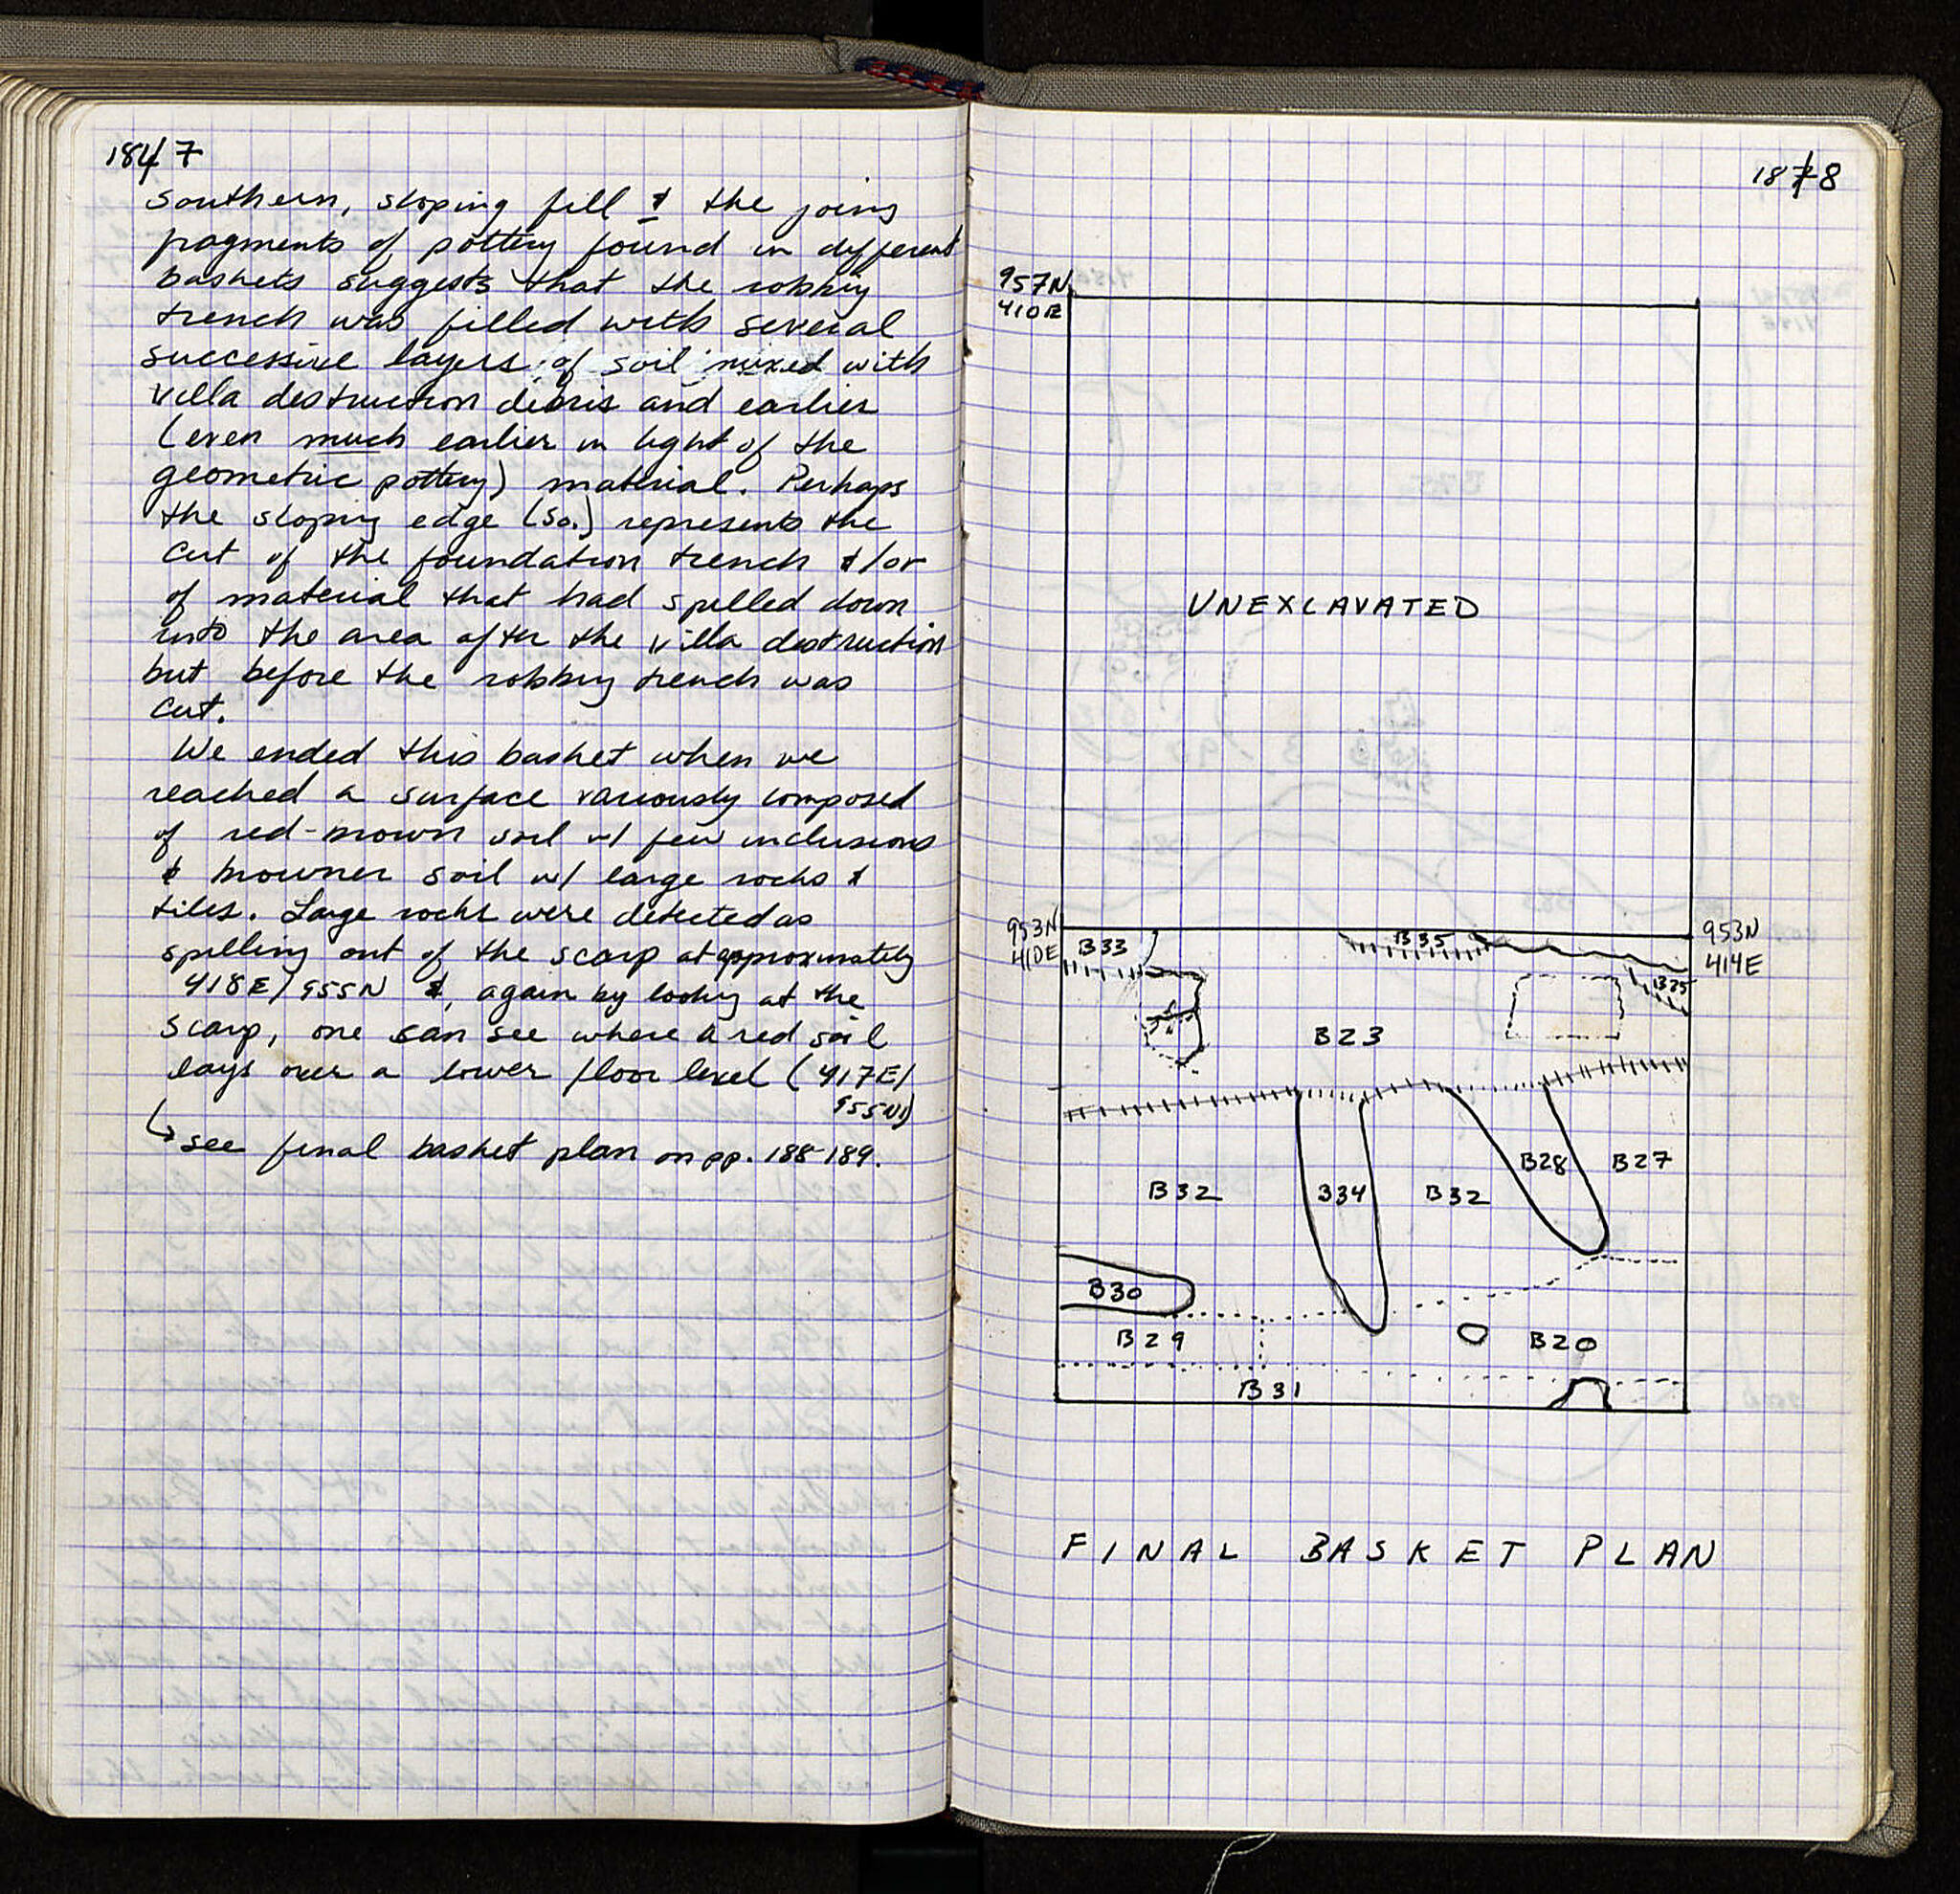 187
southern, sloping fill & the joins
fragments of pottery found in different
baskets suggests that the robbing
trench was filled with several
successive layers of soil mixed with
villa destruction debris and earlier
(even much earlier in light of the
geometric pottery) material. Perhaps
the sloping edge (so.) represents the
cut of the foundation trench &/or
of material that had spilled down
into the area after the villa destruction
but before the robbing trench was
cut.
We ended this basket when we
reached a surface variously composed
of red-brown soil w/ few inclusions
& browner soil w/ large rocks &
tiles. Large rocks were detected as
spilling out of the scarp at approximately
418E/955N &, again by looking at the
scarp, one can see where a red soil
lays over a lower floor level (417E/
955N)
↳ see final basket plan on pp. 188-189.
188
957N
410E
UNEXCAVATED
953N
410E
B33
B35
953N
414E
B25
B23
B28
B27
B32
B34
B32
B30
B29
B20
B31
FINAL BASKET PLAN